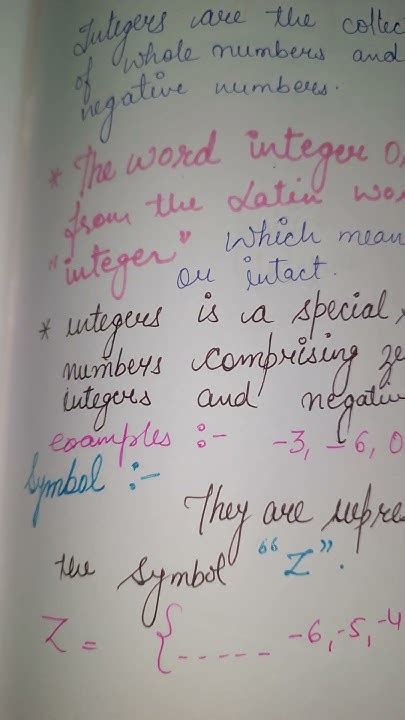 Integers are the collec
of whole numbers and
negative numbers.
* The word integer O
from the Latin wor
"integer" which mean
or intact.
* integers is a special
numbers comprising ze
integers and negativ
examples :- -3, -6, 0
Symbol :-
They are repre
the symbol "Z".
Z = {----- -6, -5, -4